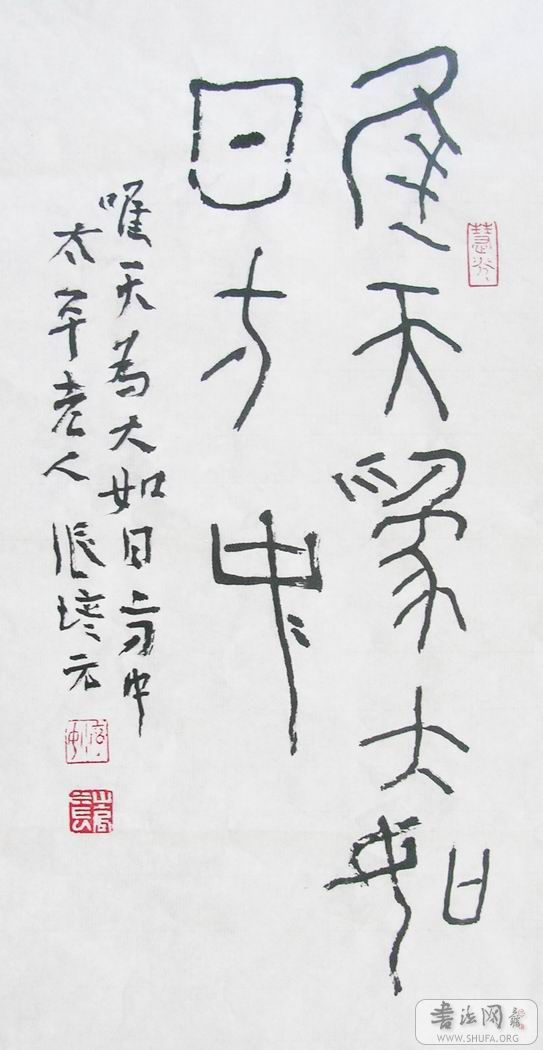 隹天為大如
日方中
唯天為大如日方中
太平老人張培元
書法网
WWW.SHUFA.ORG